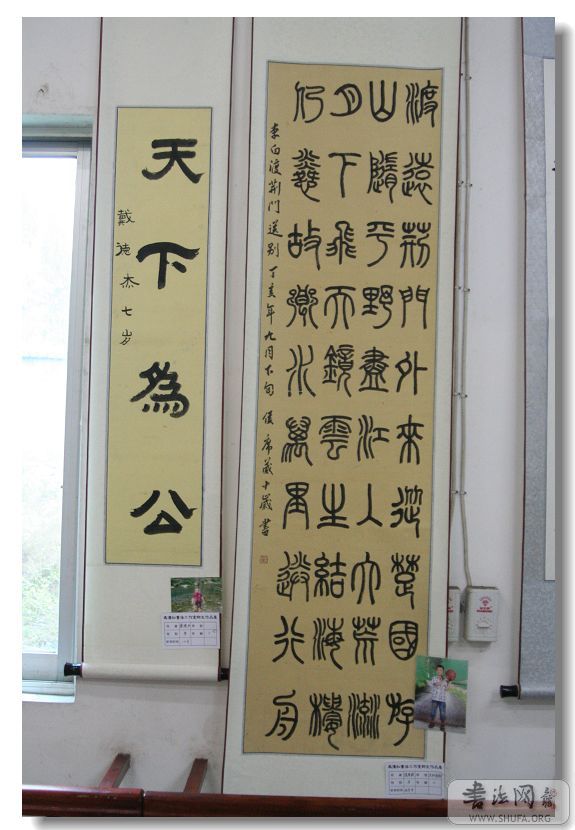 渡遠荊門外來從楚國游
山隨平野盡江入大荒流
月下飛天鏡雲生結海樓
仍憐故鄉水萬里送行舟
李白渡荊門送别丁亥年九月下旬 十歲書
天下為公
戴德杰七岁
书法网
WWW.SHUFA.ORG